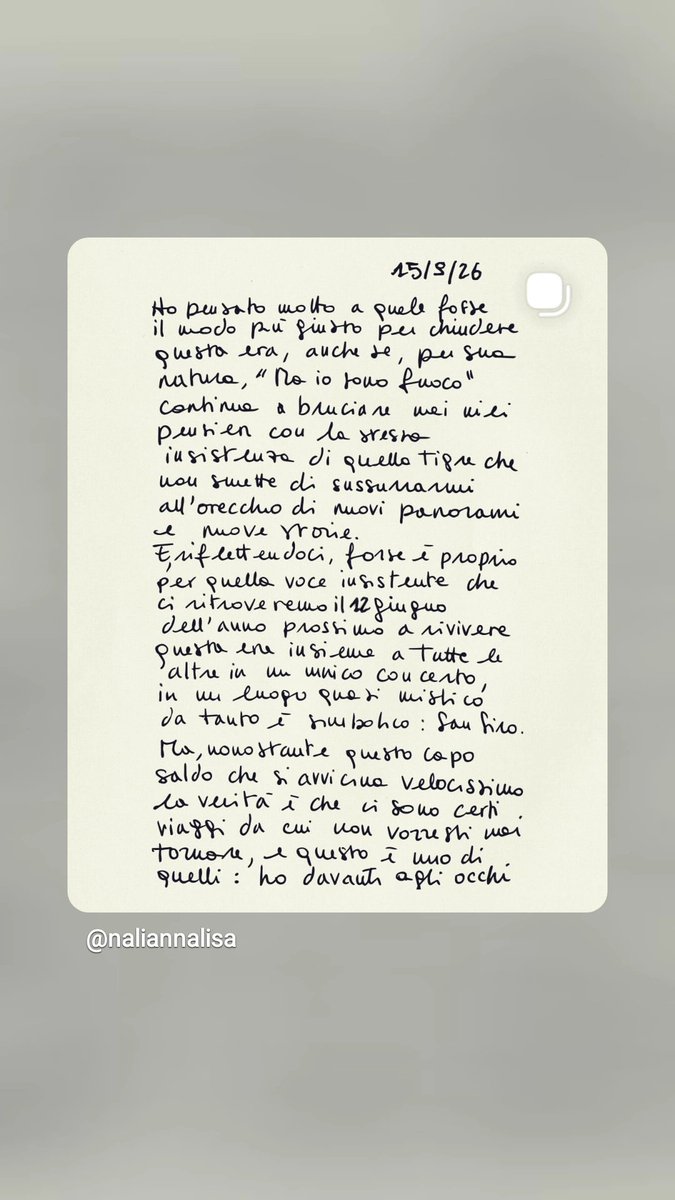 15/9/26
Ho pensato molto a quale fosse
il modo più giusto per chiudere
questa era, anche se, per sua
natura, "Ma io sono fuoco"
continua a bruciare nei miei
pensieri con la stessa
insistenza di quella tigre che
non smette di sussurrarmi
all'orecchio di nuovi panorami
e nuove storie.
E, riflettendoci, forse è proprio
per quella voce insistente che
ci ritroveremo il 12 giugno
dell'anno prossimo a rivivere
questa era insieme a tutte le
altre in un unico concerto,
in un luogo quasi mistico
da tanto è simbolico: San Siro.
Ma, nonostante questo capo
saldo che si avvicina velocissimo
la verità è che ci sono certi
viaggi da cui non vorresti mai
tornare, e questo è uno di
quelli: ho davanti agli occhi
@naliannalisa